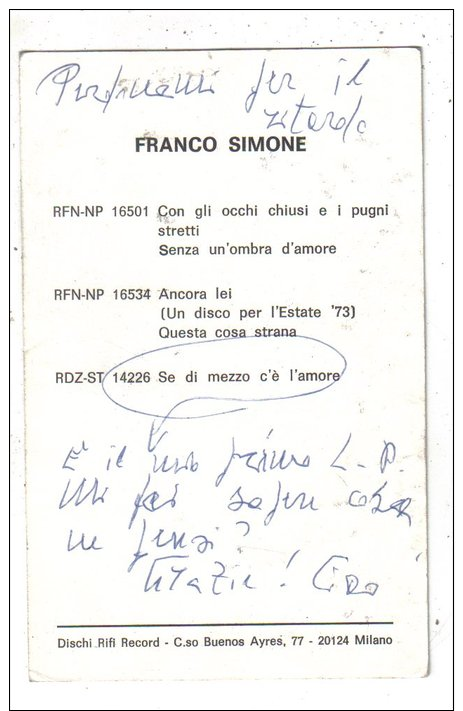 Perdonami per il
ritardo
FRANCO SIMONE
RFN-NP 16501 Con gli occhi chiusi e i pugni
stretti
Senza un'ombra d'amore
RFN-NP 16534 Ancora lei
(Un disco per l'Estate '73)
Questa cosa strana
RDZ-ST 14226 Se di mezzo c'è l'amore
È il mio primo L.P.
Mi fai sapere cosa
ne pensi?
Grazie! Ciao
Dischi Rifi Record - C.so Buenos Ayres, 77 - 20124 Milano